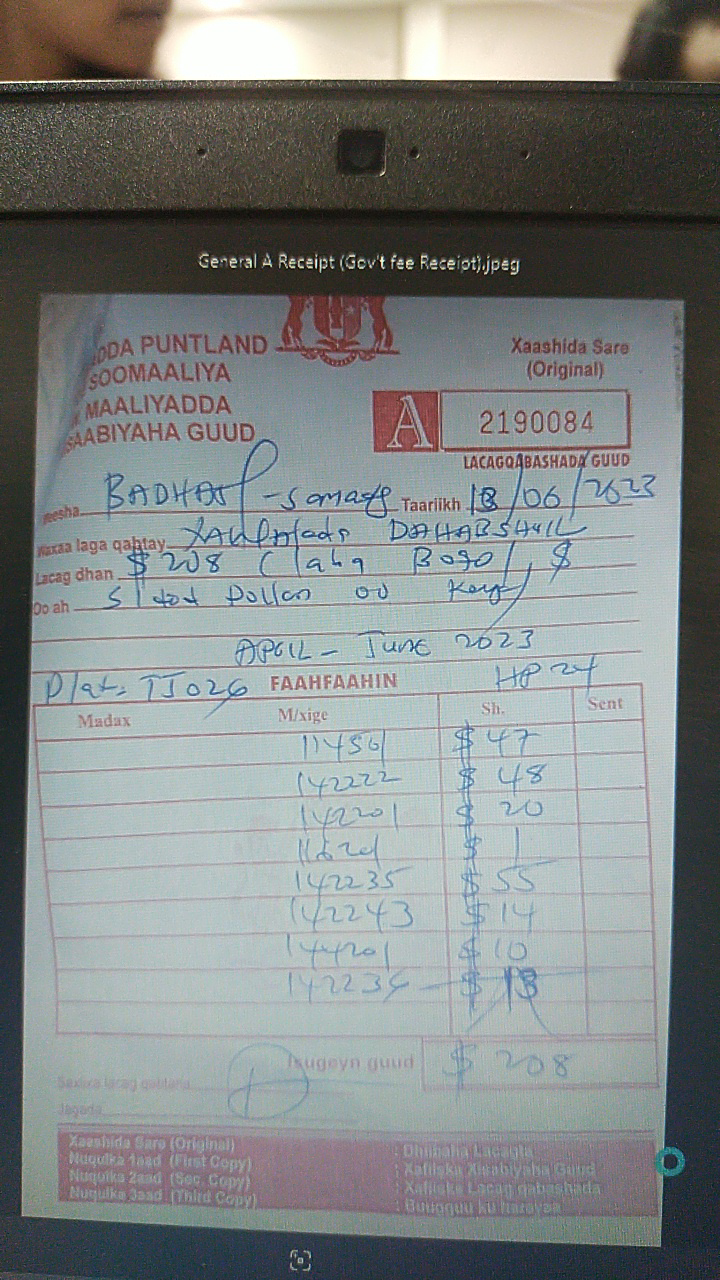 General A Receipt (Gov't fee Receipt).jpeg
PUNTLAND
SOOMAALIYA
MAALIYADDA
GUUD
Xaashida Sare
(Original)
A 2190084
LACAGQABASHADA GUUD
BADHAN Taariikh 18/06/2023
Waxaa laga qabtay DAHABSHIIL
Lacag dhan $ 208 (laba Boqol, $
Oo ah
APRIL - JUNE 2023
FAAHFAAHIN HP 24
Madax M/xige Sh. Sent
$ 47
142222 $ 48
142201 $ 20
$ 1
142235 $ 55
142243 $ 14
144201 $ 10
$ 13
Isugeyn guud $ 208
Saxiixa lacag qabtaha
Jagada
Xaashida Sare (Original) : Dhibaha Lacagta
Nuqulka 1aad (First Copy) : Xafiiska Xisabiyaha Guud
Nuqulka 2aad (Sec. Copy) : Xafiiska Lacag qabashada
Nuqulka 3aad (Third Copy) : Buugguu ku harayaa